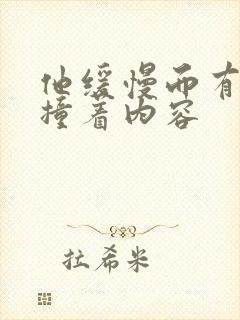 他缓慢而有
撞着内容
拉希米